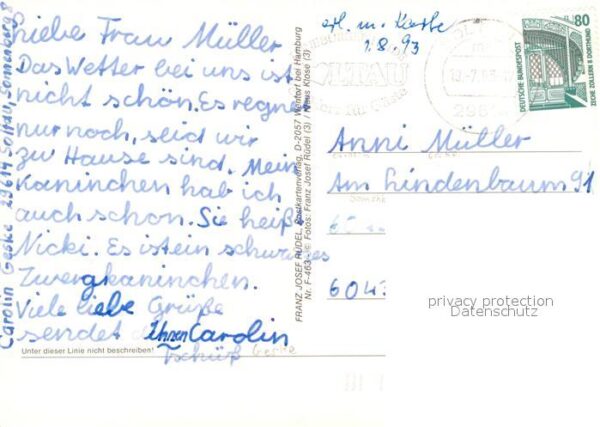 Carolin Geske 29614 Soltau, Sonnenberg 8
Liebe Frau Müller
Das Wetter bei uns ist
nicht schön. Es regnet
nur noch, seid wir
zu Hause sind. Mein
Kaninchen hab ich
auch schon. Sie heißt
Nicki. Es ist ein schwarzes
Zwergkaninchen.
Viele liebe Grüße
sendet Ihnen Carolin
Tschüß Geske
Unter dieser Linie nicht beschreiben!
FRANZ JOSEF RÜDEL, Postkartenverlag, D-2057 Wentorf bei Hamburg
Nr. F-463 Fotos: Franz Josef Rüdel (3) / Klaus Klose (3)
erl. m. Karte
1.8.93
SOLTAU
80
DEUTSCHE BUNDESPOST
ZECHE ZOLLERN II DORTMUND
Anni Müller
Am Lindenbaum 91
6043
privacy protection
Datenschutz